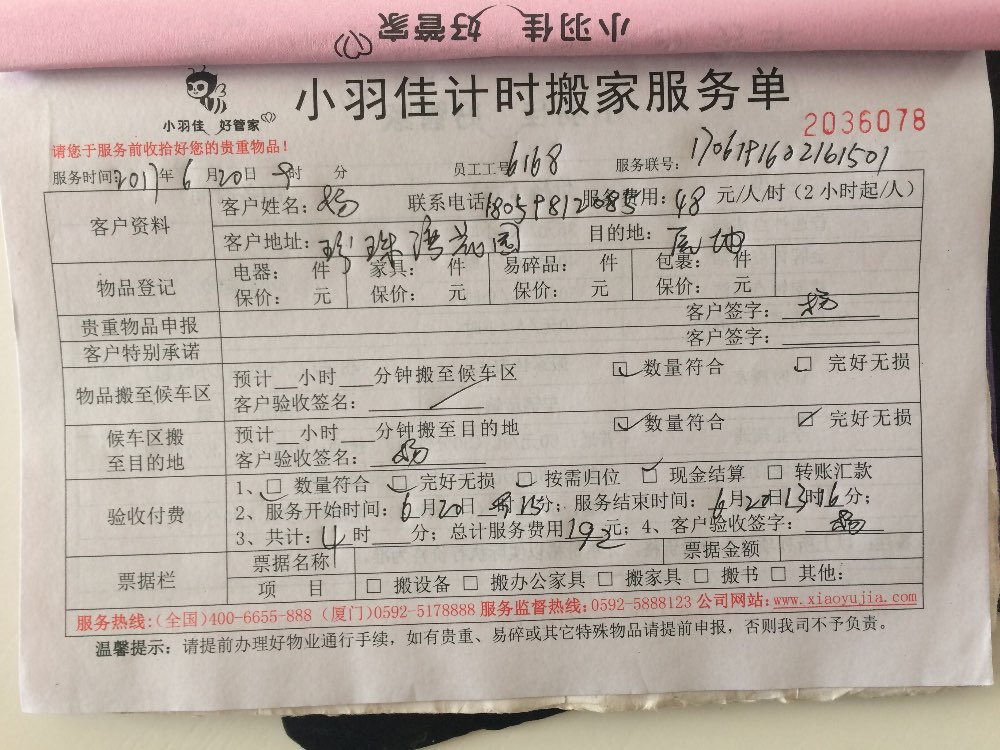 小羽佳 好管家
小羽佳 好管家
小羽佳计时搬家服务单
2036078
请您于服务前收拾好您的贵重物品！
服务时间：2017年6月20日 9时 分 员工工号6168 服务联号：1706191602161501
客户资料
客户姓名：杨 联系电话18059812085 服务费用：48元/人/时（2小时起/人）
客户地址：珍珠湾花园 目的地：原地
物品登记
电器： 件 家具： 件 易碎品： 件 包裹： 件
保价： 元 保价： 元 保价： 元 保价： 元
贵重物品申报 客户签字：杨
客户特别承诺 客户签字：
物品搬至候车区
预计__小时___分钟搬至候车区 数量符合 完好无损
客户验收签名：
候车区搬至目的地
预计__小时___分钟搬至目的地 数量符合 完好无损
客户验收签名：杨
验收付费
1、数量符合 完好无损 按需归位 现金结算 转账汇款
2、服务开始时间：6月20日9时15分；服务结束时间：6月20日13时16分；
3、共计：4时 分；总计服务费用192元；4、客户验收签字：杨
票据栏
票据名称 票据金额
项 目 搬设备 搬办公家具 搬家具 搬书 其他：
服务热线:(全国)400-6655-888 (厦门)0592-5178888 服务监督热线:0592-5888123 公司网站:www.xiaoyujia.com
温馨提示：请提前办理好物业通行手续，如有贵重、易碎或其它特殊物品请提前申报，否则我司不予负责。